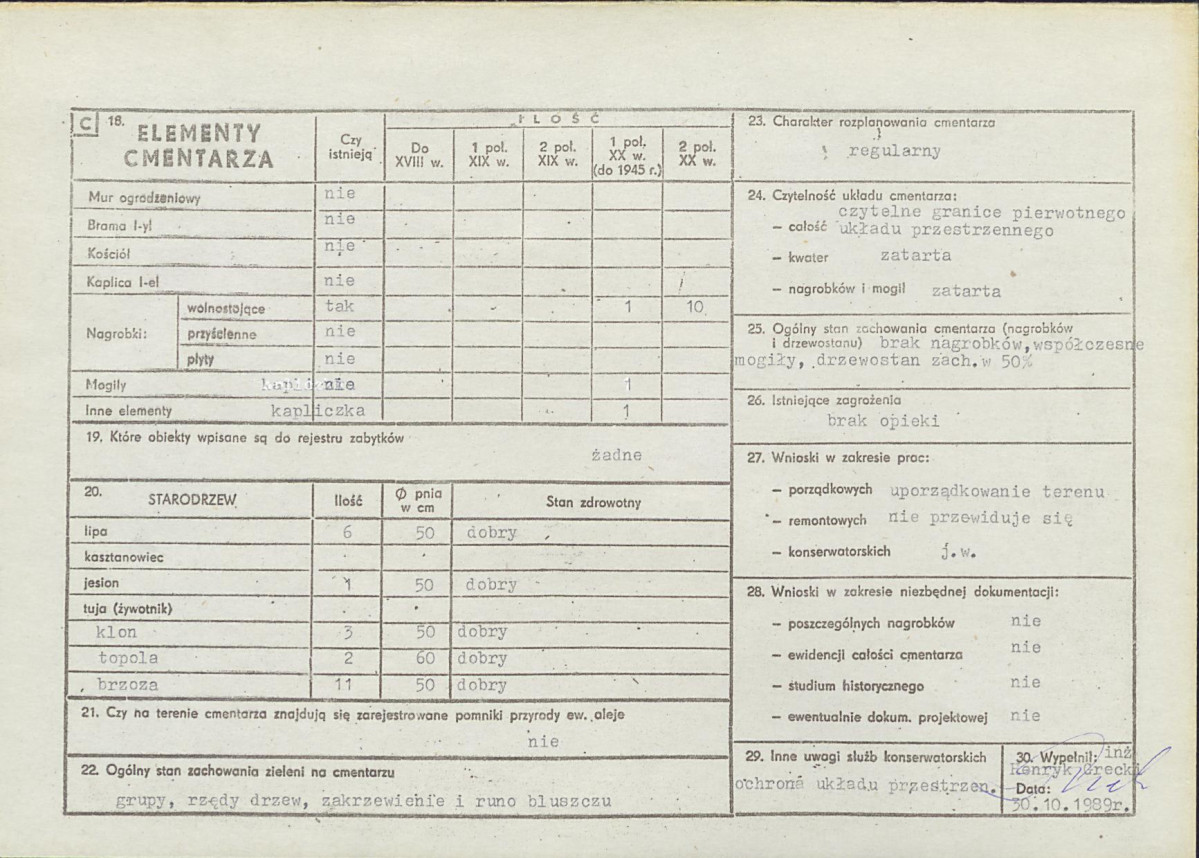 C 18. ELEMENTY CMENTARZA
Czy istnieją
ILOŚĆ
Do XVIII w.
1 poł. XIX w.
2 poł. XIX w.
1 poł. XX w. (do 1945 r.)
2 poł. XX w.
Mur ogrodzeniowy nie
Brama I-y/ nie
Kościół nie
Kaplica I-e/ nie
Nagrobki: wolnostojące tak 1 10
przyścienne nie
płyty nie
Mogiły nie 1
Inne elementy kapliczka 1
19. Które obiekty wpisane są do rejestru zabytków
żadne
20. STARODRZEW Ilość Ø pnia w cm Stan zdrowotny
lipa 6 50 dobry
kasztanowiec
jesion 1 50 dobry
tuja (żywotnik)
klon 3 50 dobry
topola 2 60 dobry
brzoza 11 50 dobry
21. Czy na terenie cmentarza znajdują się zarejestrowane pomniki przyrody ew. aleje
nie
22. Ogólny stan zachowania zieleni na cmentarzu
grupy, rzędy drzew, zakrzewienie i runo bluszczu
23. Charakter rozplanowania cmentarza
regularny
24. Czytelność układu cmentarza:
czytelne granice pierwotnego
— całość układu przestrzennego
— kwater zatarta
— nagrobków i mogił zatarta
25. Ogólny stan zachowania cmentarza (nagrobków
i drzewostanu) brak nagrobków, współczesne
mogiły, drzewostan zach. w 50%
26. Istniejące zagrożenia
brak opieki
27. Wnioski w zakresie prac:
— porządkowych uporządkowanie terenu
— remontowych nie przewiduje się
— konserwatorskich j.w.
28. Wnioski w zakresie niezbędnej dokumentacji:
— poszczególnych nagrobków nie
— ewidencji całości cmentarza nie
— studium historycznego nie
— ewentualnie dokum. projektowej nie
29. Inne uwagi służb konserwatorskich
ochrona układu przestrzen.
30. Wypełnił: inż
Henryk Grecki
Data:
30.10.1989r.